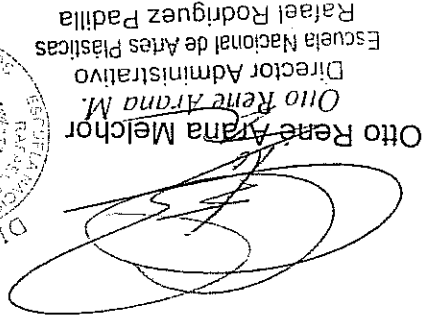 Otto René Arana Melchor
Otto René Arana M.
Director Administrativo
Escuela Nacional de Artes Plásticas
Rafael Rodríguez Padilla
ESCUELA NACIO
RAFAEL
DI